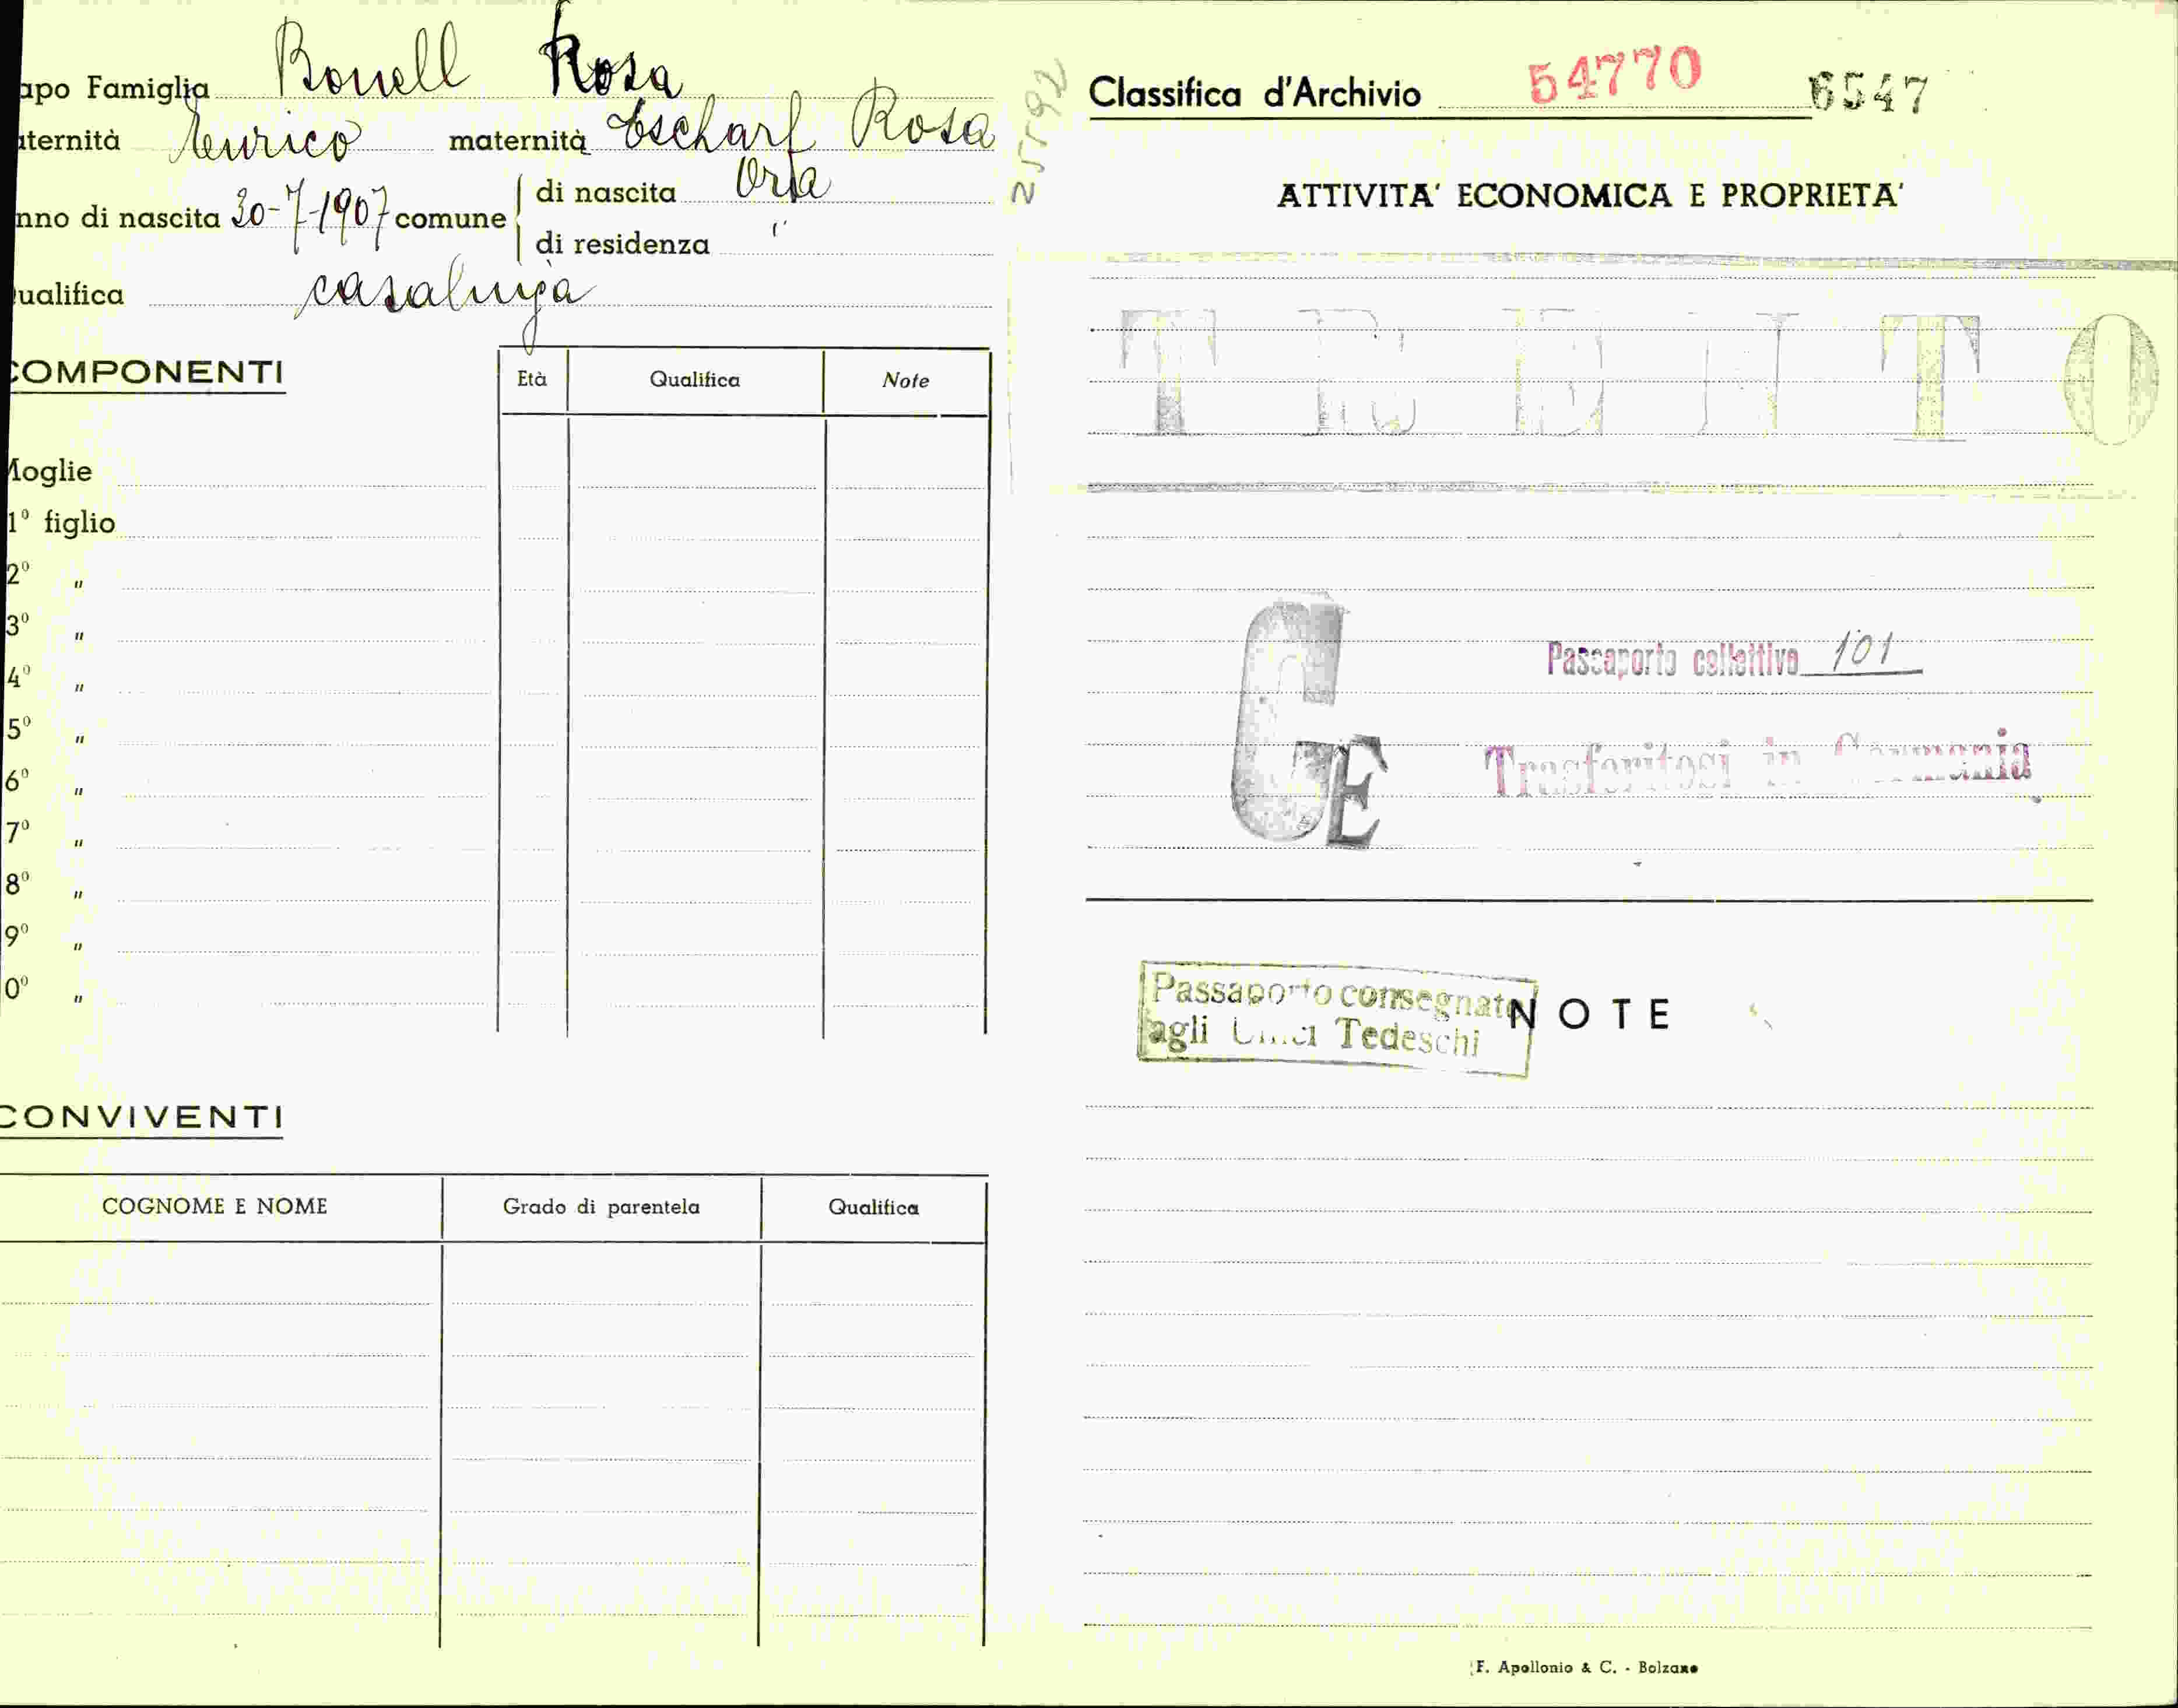 apo Famiglia Bonell Rosa
aternità Enrico maternità Tscharf Rosa
nno di nascita 30-7-1907 comune di nascita Ora
di residenza "
ualifica casalinga
COMPONENTI
Età Qualifica Note
Moglie
1º figlio
2º "
3º "
4º "
5º "
6º "
7º "
8º "
9º "
0º "
CONVIVENTI
COGNOME E NOME Grado di parentela Qualifica
25592
Classifica d'Archivio 54770 6547
ATTIVITA' ECONOMICA E PROPRIETA'
TRENTO
GE
Passaporto collettivo 101
Trasferitosi in Germania
Passaporto consegnato
agli Uffici Tedeschi
NOTE
F. Apollonio & C. - Bolzano